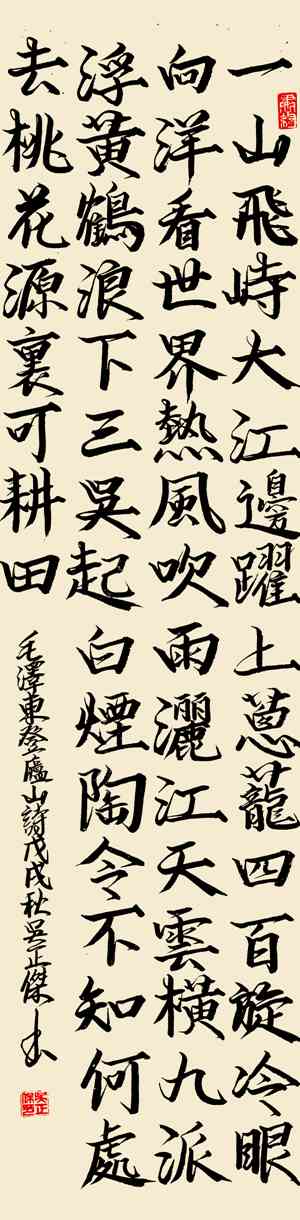 一山飛峙大江邊躍上蔥蘢四百旋冷眼
向洋看世界熱風吹雨灑江天雲橫九派
浮黃鶴浪下三吳起白煙陶令不知何處
去桃花源裏可耕田
毛澤東登廬山詩戊戌秋吳正傑书